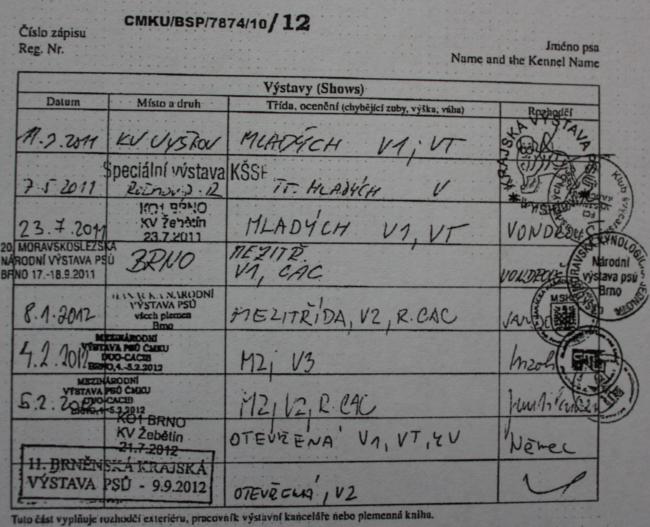 CMKU/BSP/7874/10/12
Číslo zápisu
Reg. Nr.
Jméno psa
Name and the Kennel Name
Výstavy (Shows)
Datum Místo a druh Třída, ocenění (chybějící zuby, výška, váha) Rozhodčí
2011 KV VYŠKOV MLADÝCH V1, VT
KRAJSKÁ VÝSTAVA
Speciální výstava KŠSP
7.5 2011 TŘ. MLADÝCH V
KO1 BRNO
KV Žebětín
23.7.2011
23.7.2011 MLADÝCH V1, VT
20. MORAVSKOSLEZSKÁ
NÁRODNÍ VÝSTAVA PSŮ
BRNO 17.-18.9.2011
BRNO MEZITŘ.
V1, CAC
Národní
výstava psů
Brno
HANÁCKÁ NÁRODNÍ
VÝSTAVA PSŮ
všech plemen
Brno
8.1.2012 MEZITŘÍDA, V2, R.CAC
MEZINÁRODNÍ
VÝSTAVA PSŮ ČMKU
DUO-CACIB
BRNO, 4.-5.2.2012
4.2.2012 M2, V3
MEZINÁRODNÍ
VÝSTAVA PSŮ ČMKU
DUO-CACIB
BRNO, 4.-5.2.2012
5.2. M2, V2, R.CAC
KO1 BRNO
KV Žebětín
21.7.2012
OTEVŘENÁ V1, VT, Němec
11. BRNĚNSKÁ KRAJSKÁ
VÝSTAVA PSŮ - 9.9.2012
OTEVŘENÁ, V2
Tuto část vyplňuje rozhodčí exteriéru, pracovník výstavní kanceláře nebo plemenná kniha.